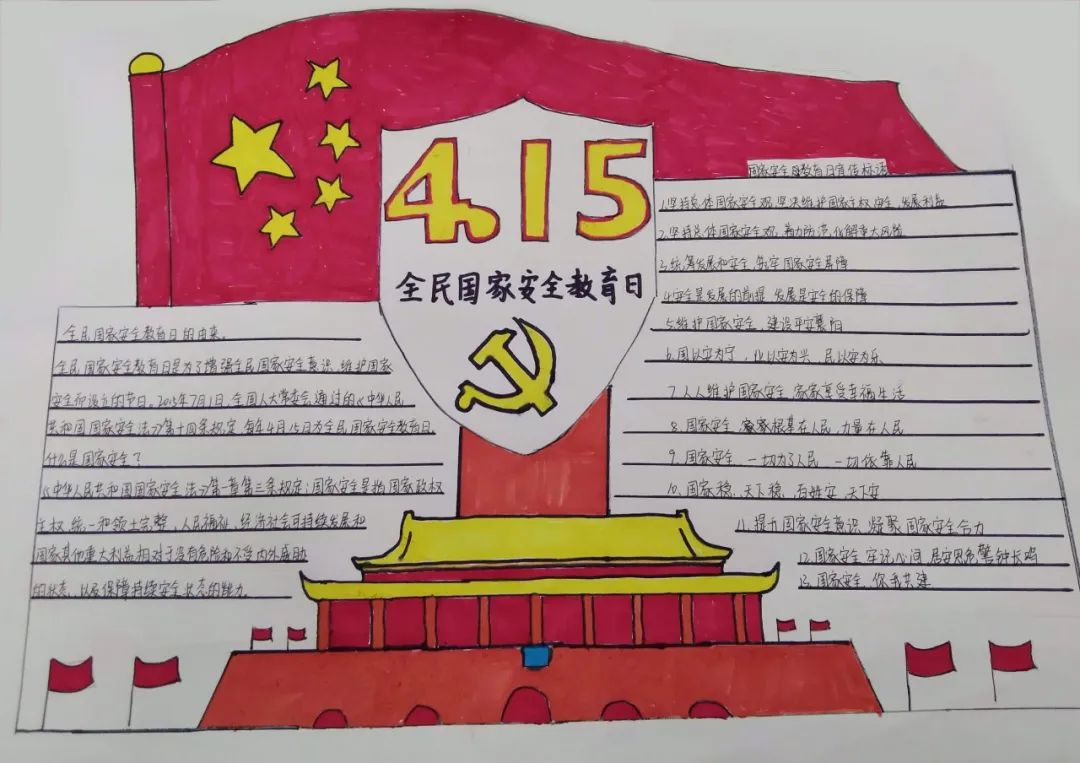 4.15
全民国家安全教育日
全民国家安全教育日的由来。
全民国家安全教育日是为了增强全民国家安全意识、维护国家
安全而设立的节日。2015年7月1日,全国人大常委会通过的《中华人民
共和国国家安全法》第十四条规定,每年4月15日为全民国家安全教育日。
什么是国家安全?
《中华人民共和国国家安全法》第一章第三条规定:国家安全是指国家政权
主权、统一和领土完整、人民福祉、经济社会可持续发展和
国家其他重大利益相对于没有危险和不受内外威胁
的状态、以及保障持续安全状态的能力
国家安全教育日宣传标语
1.坚持总体国家安全观,坚决维护国家主权、安全、发展利益
2.坚持总体国家安全观,着力防范化解重大风险
3.统筹发展和安全,筑牢国家安全屏障
4.安全是发展的前提,发展是安全的保障
5.维护国家安全,建设平安襄阳
6.国以安为宁,化以安为兴,民以安为乐
7.人人维护国家安全,家家享受幸福生活
8.国家安全,根基在人民,力量在人民
9.国家安全,一切为了人民,一切依靠人民
10.国家稳、天下稳,百姓安、天下安
11.提升国家安全意识,凝聚国家安全合力
12.国家安全牢记心间,居安思危警钟长鸣
13.国家安全,你我共建